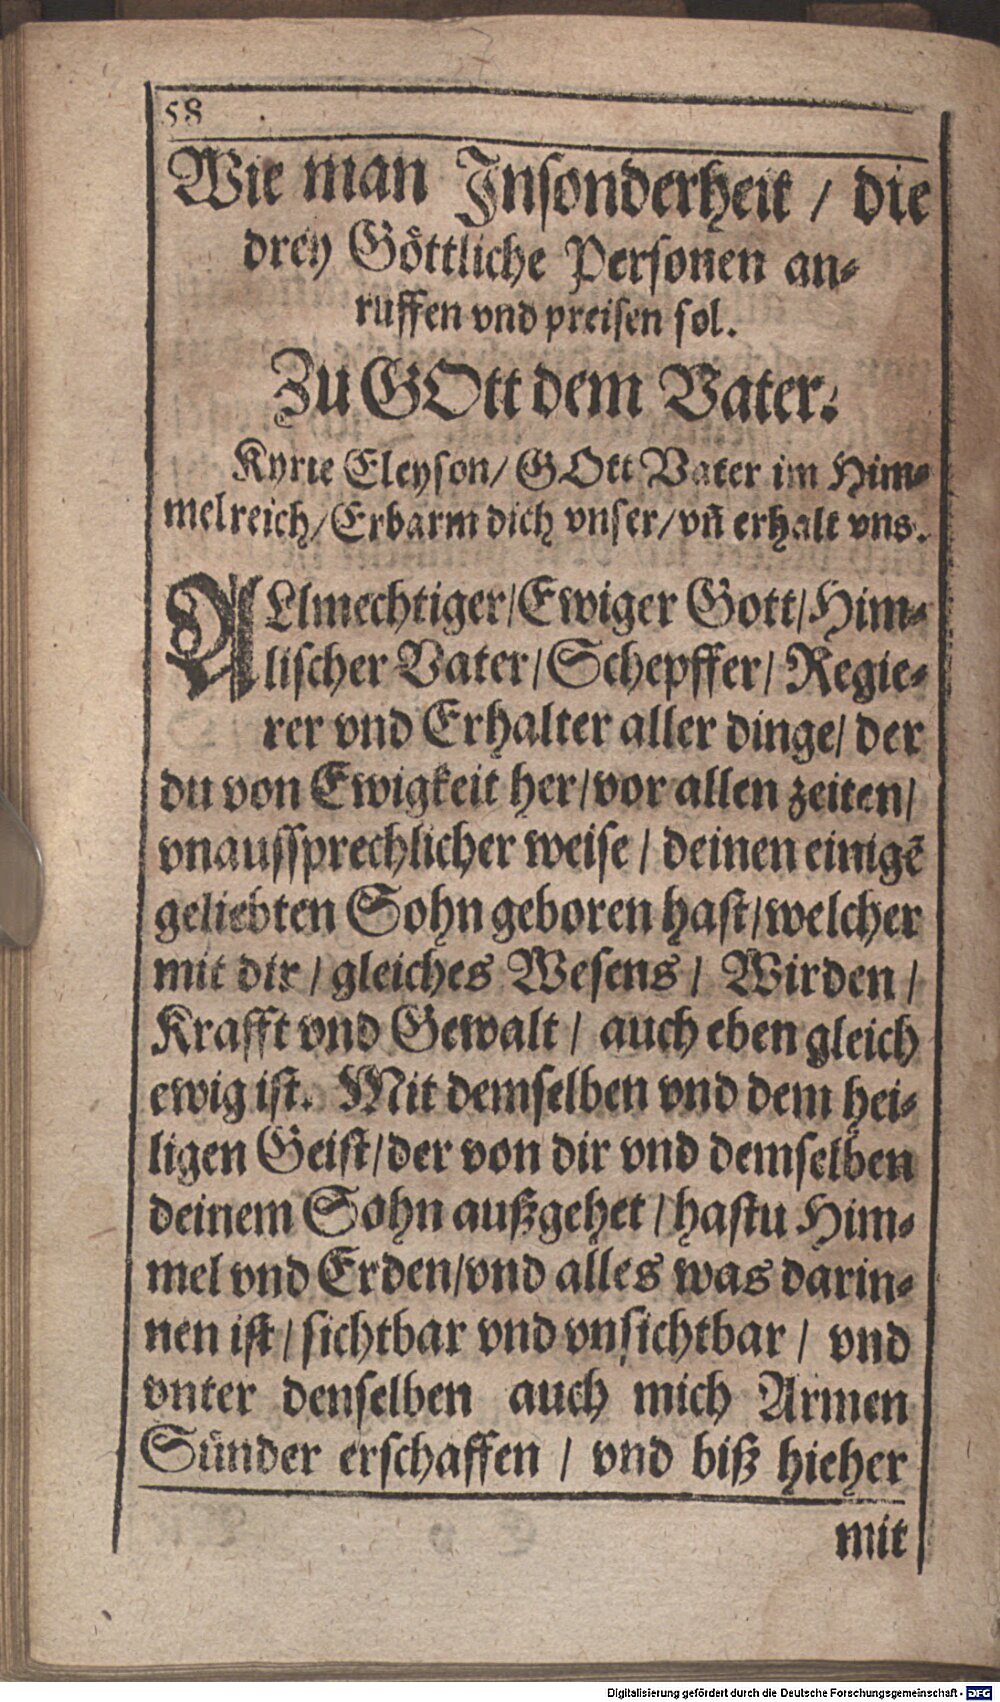 58
Wie man Jnſonderheit / die
drey Goͤttliche Perſonen an⸗
ruffen vnd preiſen ſol.
Zu GOtt dem Vater.
Kyrie Eleyſon/ GOtt Vater im Him⸗
melreich/ Erbarm dich vnſer/ vñ erhalt vns.
ALlmechtiger/ Ewiger Gott/ Him⸗
liſcher Vater/ Schepffer/ Regie⸗
rer vnd Erhalter aller dinge/ der
du von Ewigkeit her/ vor allen zeiten/
vnausſprechlicher weiſe / deinen einigẽ
geliebten Sohn geboren haſt/ welcher
mit dir / gleiches Weſens / Wirden /
Krafft vnd Gewalt / auch eben gleich
ewig iſt. Mit demſelben vnd dem hei⸗
ligen Geiſt/ der von dir vnd demſelben
deinem Sohn außgehet / haſtu Him⸗
mel vnd Erden/ vnd alles was darin⸗
nen iſt / ſichtbar vnd vnſichtbar / vnd
vnter denſelben auch mich Armen
Suͤnder erſchaffen / vnd biß hieher
mit
Digitalisierung gefördert durch die Deutsche Forschungsgemeinschaft - DFG